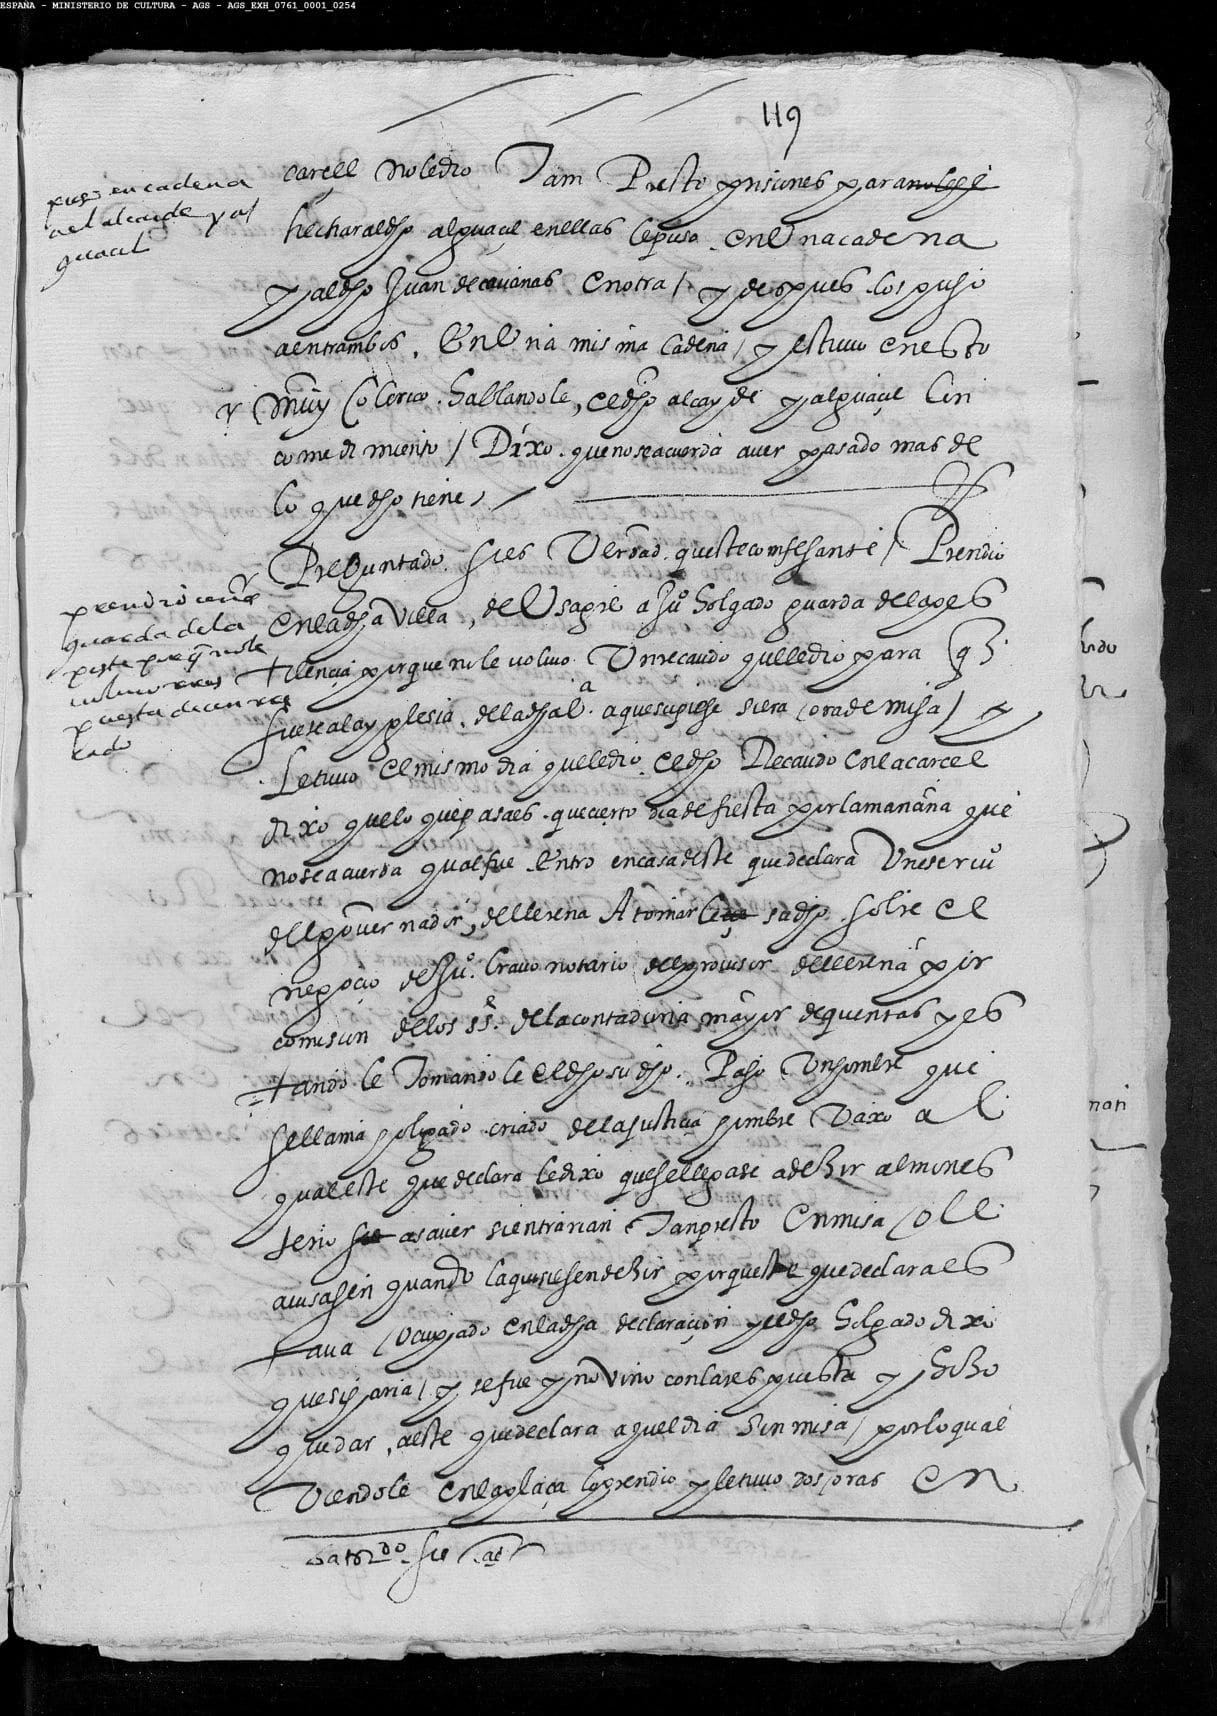 ESPAÑA - MINISTERIO DE CULTURA - AGS - AGS_EXH_0761_0001_0254
119
puso en cadena
al alcaide y al
guacil
carcel no le dio Tam Presto prisiones para
hechar al dho alguaçil en ellas le puso en Una cadena
y al dho Juan de cavanas en otra / y despues los puso
a entrambos. En Una misma Cadena / y estuvo en esto
muy Colerico. hablandole, el dho alcayde y alguaçil Con
comedimiento / Dixo. que no se acuerda aver pasado mas de
lo que dho tiene
Preguntado. si es Verdad. queste comfesante / Prendio
en la dha Villa, del Usagre a Juº holgado guarda de la pes
tilencia porque no le volvio Un recaudo que le dio para q
fuese a la yglesia. de la dha Vª. a que supiese si era ora de misa / y
le tuvo el mismo dia que le dio el dho Recaudo en la carcel
dixo que lo que pasa es. que cierto dia de fiesta por la mañana que
no se acuerda qual fue. Entro en casa deste que declara Un escrivº
del governador, de llerena A tomar le su dho. sobre el
negocio de Juº. bravo notario del provisor de llerena por
comision de los sres. de la contaduria mayor de quentas y es
tando le Tomando le el dho su dho. Paso Un hombre que
se llama holgado criado de la justicia hombre Vaxo al
qual este que declara le dixo que se llegase a dezir al mones
terio a saver si entrarian Tan presto en misa o le
avisasen quando la quisiesen dezir porqueste que declara es
tava Ocupado en la dha declaraçion y el dho holgado dixo
que si haria / y se fue y no Vino con la respuesta y hizo
quedar, a este que declara aquel dia Sin misa / por lo qual
Viendole en la plaça le prendio y le tuvo dos oras en
prendio a un
guarda de la
peste porq no le
volvio res
puesta de un re
cado